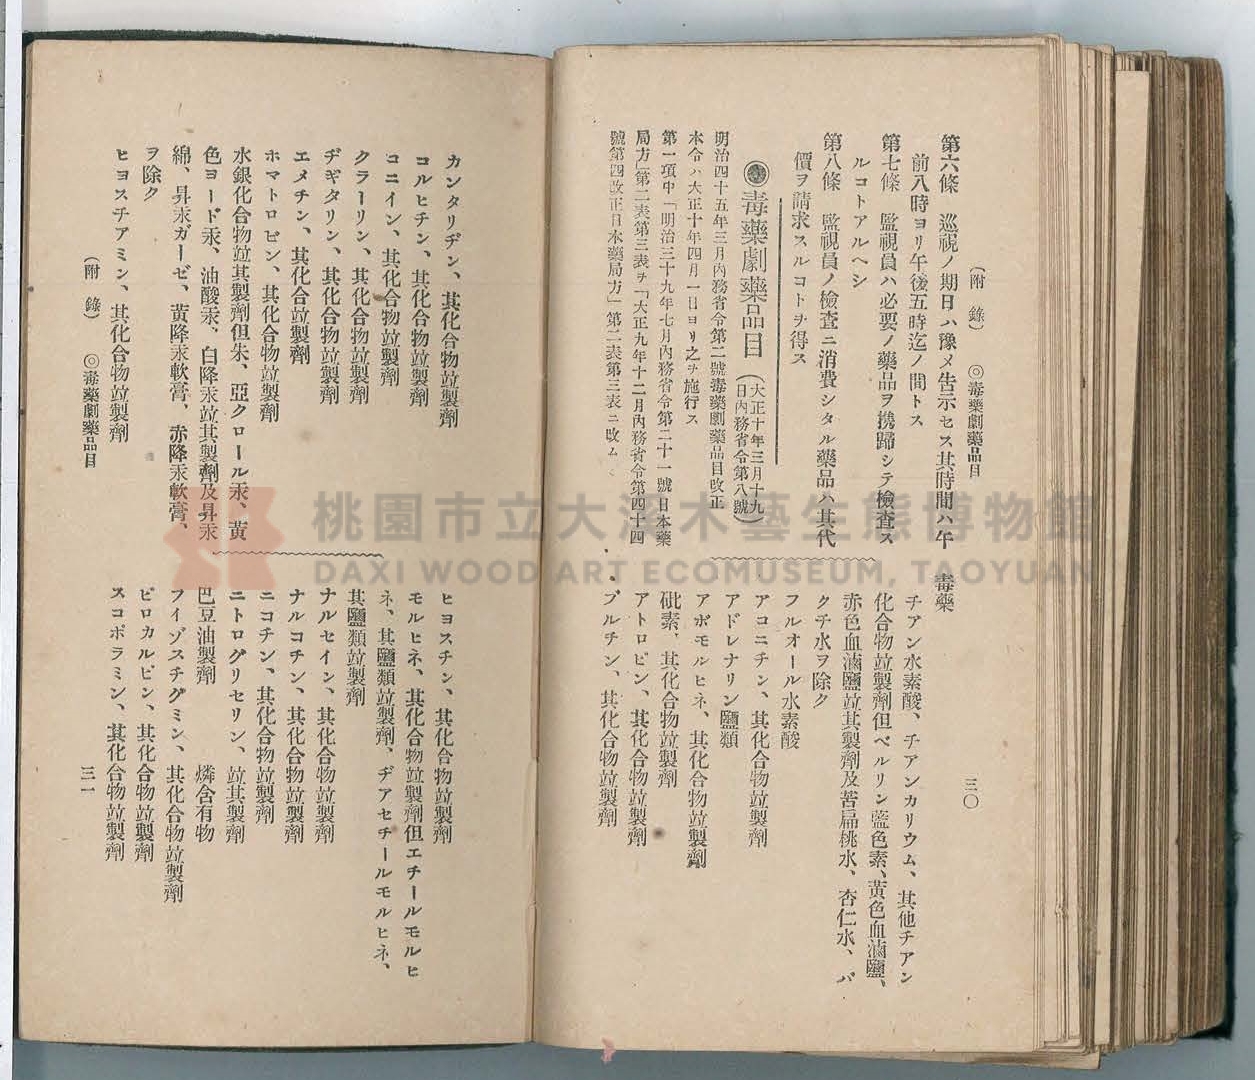 (附錄) ◎毒藥劇藥品目 三〇
第六條 巡視ノ期日ハ豫メ告示セス其時間ハ午
前八時ヨリ午後五時迄ノ間トス
第七條 監視員ハ必要ノ藥品ヲ携歸シテ檢査ス
ルコトアルヘシ
第八條 監視員ノ檢査ニ消費シタル藥品ハ其代
價ヲ請求スルコトヲ得ス
◎毒藥劇藥品目(大正十年三月十九
日內務省令第八號)
明治四十五年三月內務省令第二號毒藥劇藥品目改正
本令ハ大正十年四月一日ヨリ之ヲ施行ス
第一項中「明治三十九年七月內務省令第二十一號日本藥
局方」第二表第三表ヲ「大正九年十二月內務省令第四十四
號第四改正日本藥局方」第二表第三表ニ改ム
毒藥
チアン水素酸、チアンカリウム、其他チアン
化合物竝製劑但ベルリン藍色素、黃色血滷鹽、
赤色血滷鹽竝其製劑及苦扁桃水、杏仁水、バ
クチ水ヲ除ク
フルオール水素酸
アコニチン、其化合物竝製劑
アドレナリン鹽類
アポモルヒネ、其化合物竝製劑
砒素、其化合物竝製劑
アトロピン、其化合物竝製劑
ブルチン、其化合物竝製劑
カンタリヂン、其化合物竝製劑
コルヒチン、其化合物竝製劑
コニイン、其化合物竝製劑
クラーリン、其化合物竝製劑
ヂギタリン、其化合物竝製劑
エメチン、其化合竝製劑
ホマトロピン、其化合物竝製劑
水銀化合物竝其製劑但朱、亞クロール汞、黃
色ヨード汞、油酸汞、白降汞竝其製劑及昇汞
綿、昇汞ガーゼ、黃降汞軟膏、赤降汞軟膏、
ヲ除ク
ヒヨスチアミン、其化合物竝製劑
ヒヨスチン、其化合物竝製劑
モルヒネ、其化合物竝製劑但エチールモルヒ
ネ、其鹽類竝製劑、ヂアセチールモルヒネ、
其鹽類竝製劑
ナルセイン、其化合物竝製劑
ナルコチン、其化合物竝製劑
ニコチン、其化合物竝製劑
ニトログリセリン、竝其製劑
巴豆油製劑 燐含有物
フイゾスチグミン、其化合物竝製劑
ピロカルピン、其化合物竝製劑
スコポラミン、其化合物竝製劑
(附錄) ◎毒藥劇藥品目 三一
桃園市立大溪木藝生態博物館
DAXI WOOD ART ECOMUSEUM, TAOYUAN